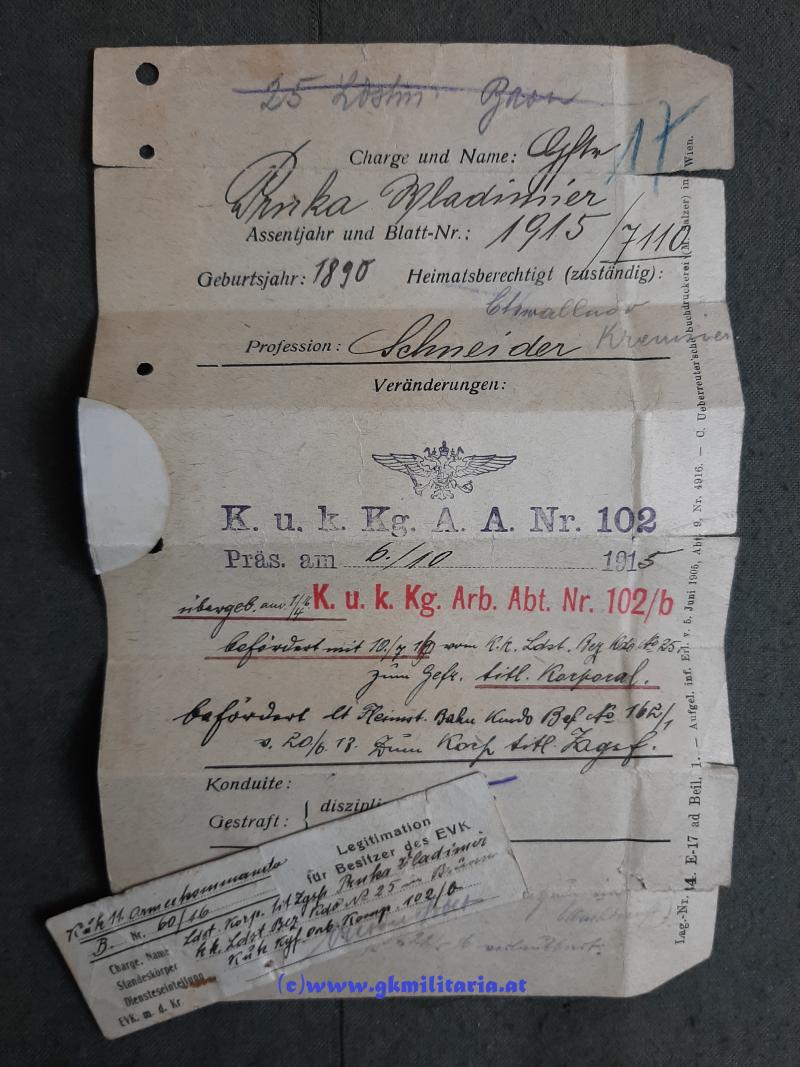 25 Ldstm.
Charge und Name: Gftr 17
Pruka Wladimier
Assentjahr und Blatt-Nr.: 1915/7110
Geburtsjahr: 1890 Heimatsberechtigt (zuständig):
Kremsier
Profession: Schneider
Veränderungen:
K. u. k. Kg. A. A. Nr. 102
Präs. am 6./10 1915
übergeb. am 1/4 K. u. k. Kg. Arb. Abt. Nr. 102/b
befördert mit 10./7 vom K.K. Ldst. Bez Kdo No 25
zum Gefr. titl. Korporal.
befördert lt Heimst. Bahn Kmdo Bef. No 162/1
v. 20/6.18. Zum Korp titl. Zugsf.
Konduite:
Gestraft: { diszipli
Legitimation
für Besitzer des EVK
K. u. k. 11. Armeekommando
B. Nr. 60/16
Charge, Name Ldst. Korp. tit Zgsf. Pruka Vladimir
Standeskörper kk. Ldst. Bez Kdo No 25 in Brünn
Diensteseinteilung K. u. k. Kgf. Arb. Komp. 102/b
EVK. m. d. Kr.
Lag.-Nr. 14. E-17 ad Beil. 1. — Aufgel. inf. Erl. v. 5. Juni 1905, Abt. 9, Nr. 4916. — C. Ueberreuter'sche Buchdruckerei (M. Salzer) in Wien.
(c)www.gkmilitaria.at